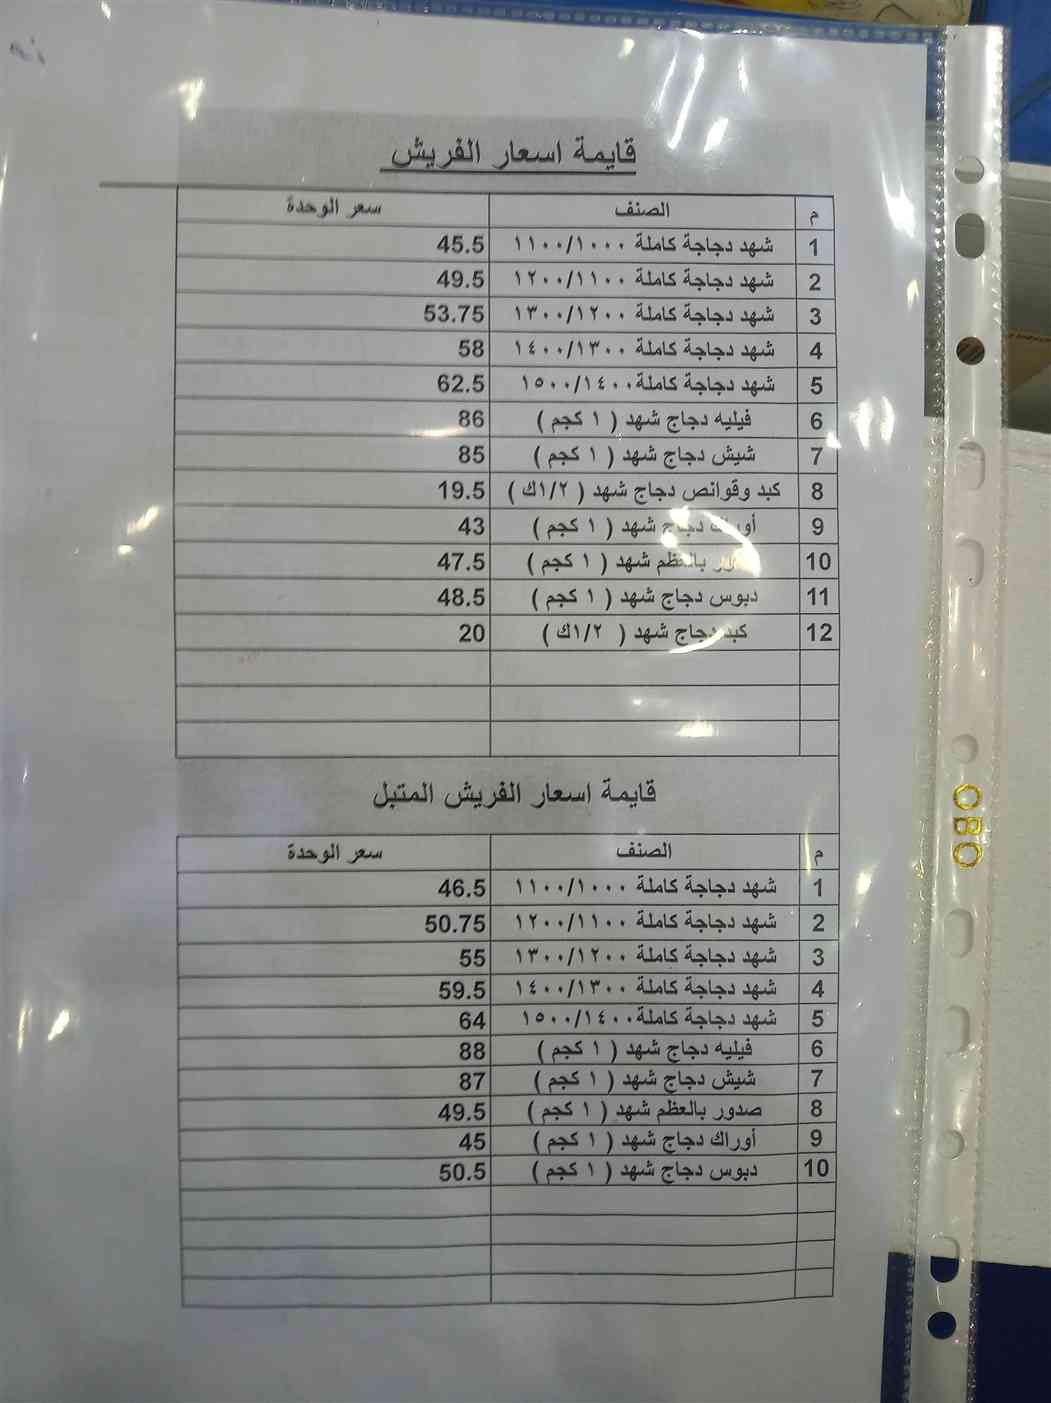 قايمة اسعار الفريش
م الصنف سعر الوحدة
1 شهد دجاجة كاملة ١١٠٠/١٠٠٠ 45.5
2 شهد دجاجة كاملة ١٢٠٠/١١٠٠ 49.5
3 شهد دجاجة كاملة ١٣٠٠/١٢٠٠ 53.75
4 شهد دجاجة كاملة ١٤٠٠/١٣٠٠ 58
5 شهد دجاجة كاملة١٥٠٠/١٤٠٠ 62.5
6 فيليه دجاج شهد ( ١ كجم ) 86
7 شيش دجاج شهد ( ١ كجم ) 85
8 كبد وقوانص دجاج شهد ( ١/٢ك ) 19.5
9 أوراك دجاج شهد ( ١ كجم ) 43
10 بالعظم شهد ( ١ كجم ) 47.5
11 دبوس دجاج شهد ( ١ كجم ) 48.5
12 كبد دجاج شهد ( ١/٢ك ) 20
قايمة اسعار الفريش المتبل
م الصنف سعر الوحدة
1 شهد دجاجة كاملة ١١٠٠/١٠٠٠ 46.5
2 شهد دجاجة كاملة ١٢٠٠/١١٠٠ 50.75
3 شهد دجاجة كاملة ١٣٠٠/١٢٠٠ 55
4 شهد دجاجة كاملة ١٤٠٠/١٣٠٠ 59.5
5 شهد دجاجة كاملة١٥٠٠/١٤٠٠ 64
6 فيليه دجاج شهد ( ١ كجم ) 88
7 شيش دجاج شهد ( ١ كجم ) 87
8 صدور بالعظم شهد ( ١ كجم ) 49.5
9 أوراك دجاج شهد ( ١ كجم ) 45
10 دبوس دجاج شهد ( ١ كجم ) 50.5
OBO